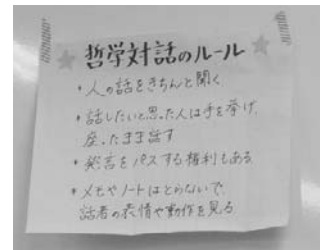 哲学対話のルール
・人の話をきちんと聞く
・話したいと思った人は手を挙げ、
座ったまま話す
・発言をパスする権利もある
・メモやノートはとらないで、
話者の表情や動作を見る